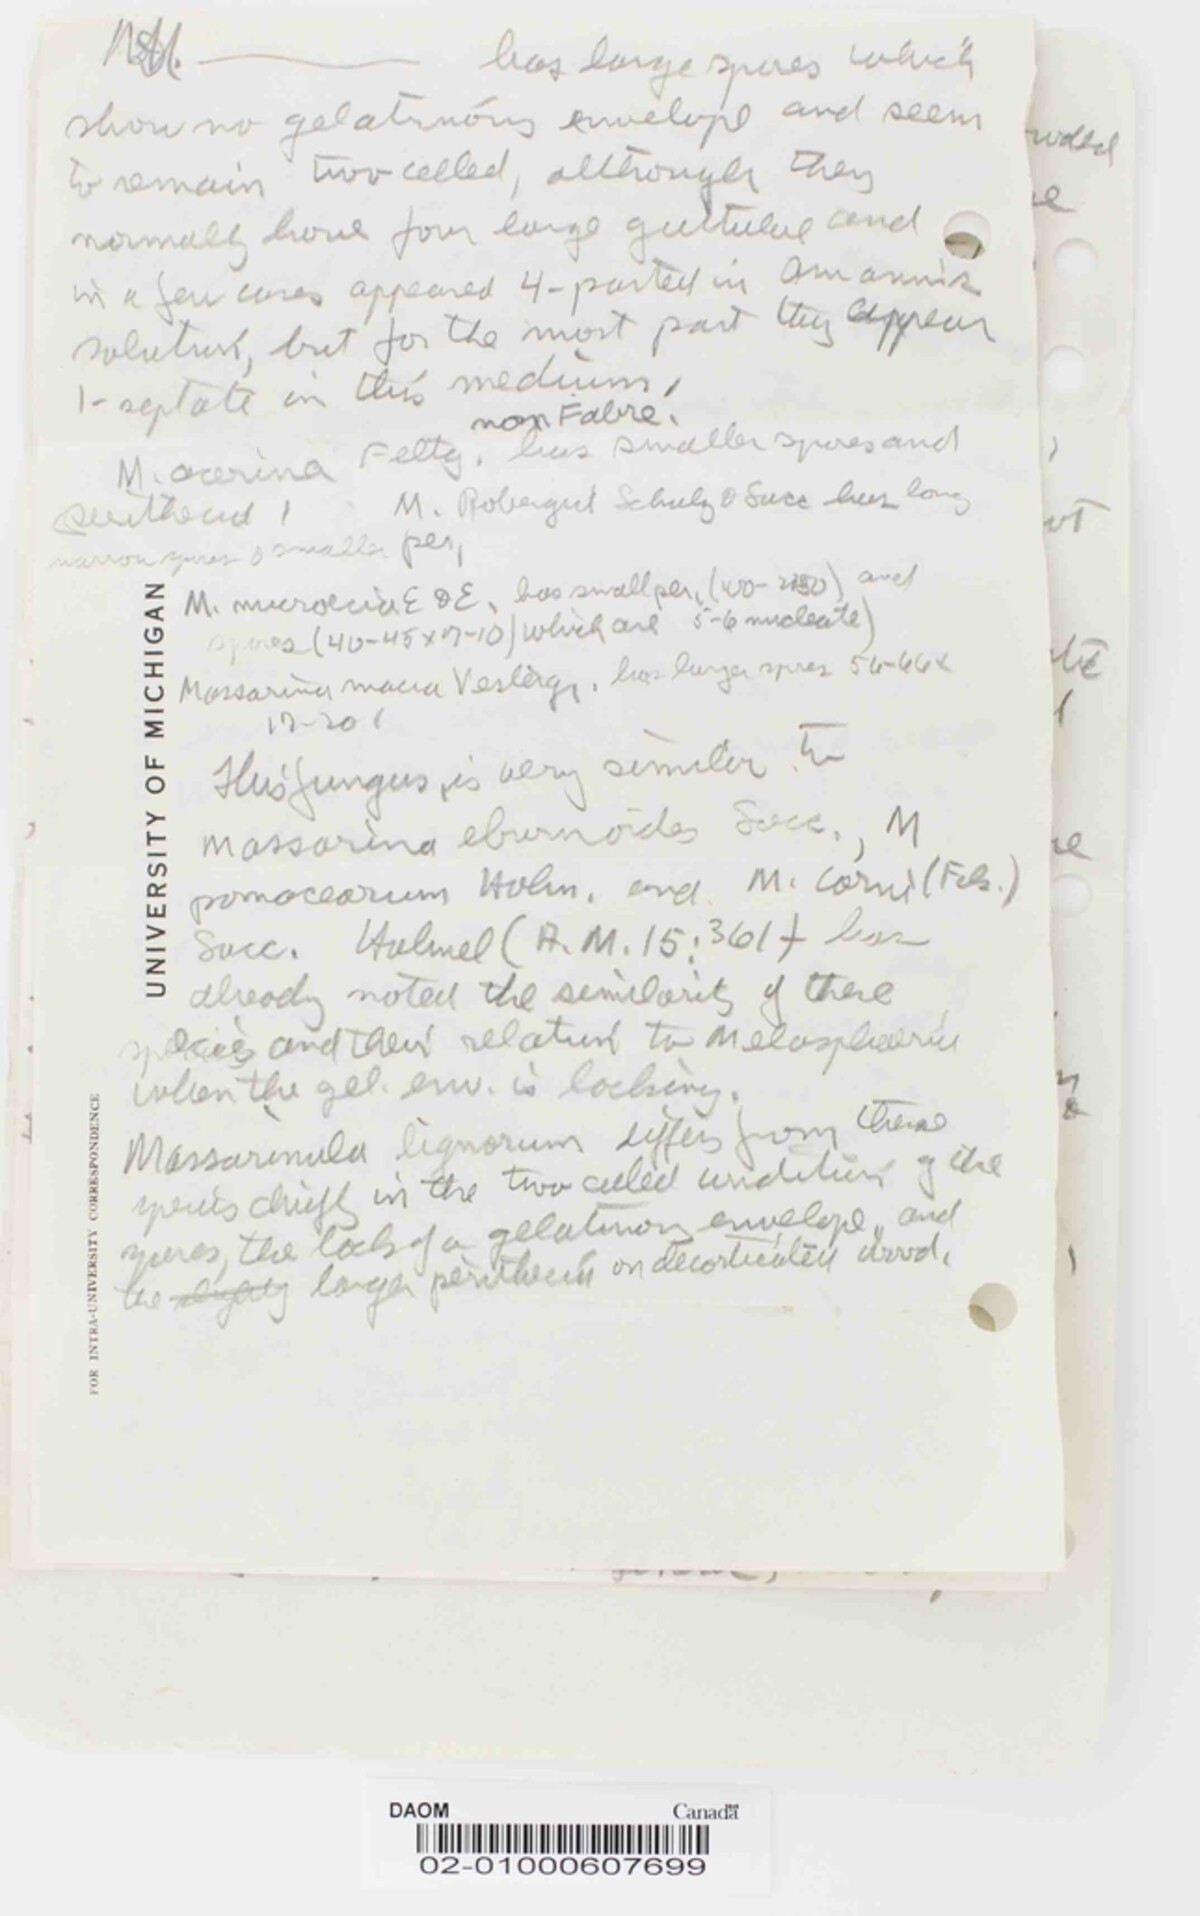 M. has large spores which
show no gelatinous envelope and seem
to remain two celled, although they
normally have four large guttulae and
in a few cases appeared 4-parted in Amann's
solution, but for the most part they appear
1-septate in this medium.
non Fabre.
M. acerina Feltg. has smaller spores and
perithecia. M. Robergei Schulz & Sacc has long
narrow spores & smaller per.
M. microecia E & E. has small per. and
spores (40-45 x 7-10) which are 5-6 nucleate)
Massarina macra Vestergr. has larger spores 56-66 x
17-20.
This fungus, is very similar to
Massarina eburnoides Sacc., M
pomacearum Hohn. and M. Corni (Fck.)
Sacc. Hohnel (A.M. 15:361) has
already noted the similarity of these
species and their relation to Melaspheria
when the gel. env. is lacking.
Massarinula lignorum differs from these
species chiefly in the two celled condition of the
spores, the lack of a gelatinous envelope, and
the slightly larger perithecia on decorticated wood.
UNIVERSITY OF MICHIGAN
FOR INTRA-UNIVERSITY CORRESPONDENCE
DAOM Canada
02-01000607699